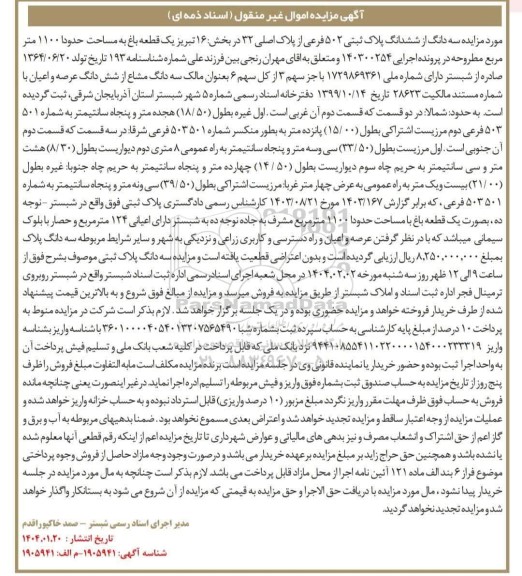 آگهی مزایده اموال غیر منقول (اسناد ذمه ای)
مورد مزایده سه دانگ از ششدانگ پلاک ثبتی ۵۰۲ فرعی از پلاک اصلی ۳۲ در بخش: ۱۶ تبریز یک قطعه باغ به مساحت حدودا ۱۱۰۰ متر
مربع مطروحه در پرونده اجرایی ۱۴۰۳۰۰۲۵۴ و متعلق به اقای مهران رنجی بین فرزند علی شماره شناسنامه ۱۹۳ تاریخ تولد ۱۳۶۴/۰۶/۲۰
صادره از شبستر دارای شماره ملی ۱۷۲۹۸۶۹۳۶۱ با جز سهم ۳ از کل سهم ۶ بعنوان مالک سه دانگ مشاع از شش دانگ عرصه و اعیان با
شماره مستند مالکیت ۲۸۶۲۳ تاریخ ۱۳۹۹/۱۰/۱۴ دفترخانه اسناد رسمی شماره ۵ شهر شبستر استان آذربایجان شرقی، ثبت گردیده
است. به حدود: شمالا: در دو قسمت که قسمت دوم آن غربی است. اول غیره بطول (۱۸/۵۰) هجده متر و پنجاه سانتیمتر به شماره ۵۰۱
۵۰۳ فرعی دوم مرزیست اشتراکی بطول (۱۵/۰۰) پانزده متر به بطور منکسر شماره ۵۰۱ ۵۰۳ فرعی شرقا: در سه قسمت که قسمت دوم
آن جنوبی است. اول مرزیست بطول (۳۳/۵۰) سی وسه متر و پنجاه سانتیمتر به راه عمومی ۸ متری دوم دیواریست بطول (۸/۳۰) هشت
متر و سی سانتیمتر به حریم چاه سوم دیواریست بطول (۱۴/۵۰) چهارده متر و پنجاه سانتیمتر به حریم چاه جنوبا: غیره بطول
(۲۱/۰۰) بیست ویک متر به راه عمومی به عرض چهار متر غربا: مرزیست اشتراکی بطول (۳۹/۵۰) سی ونه متر و پنجاه سانتیمتر به شماره
۵۰۱ ۵۰۳ فرعی ، که برابر گزارش ۱۴۰۳/۱۶۷ مورخ ۱۴۰۳/۰۸/۲۱ کارشناس رسمی دادگستری پلاک ثبتی فوق واقع در شبستر - توجه
ده ، بصورت یک قطعه باغ با مساحت حدودا ۱۱۰۰ مترمربع مشرف به جاده توجه ده به شبستر دارای اعیانی ۱۲۴ مترمربع و حصار با بلوک
سیمانی میباشد که با در نظر گرفتن عرصه واعیان و راه دسترسی و کاربری زراعی و نزدیکی به شهر و سایر شرایط مربوطه سه دانگ پلاک
بمبلغ ۸,۲۵۰,۰۰۰,۰۰۰ ریال ارزیابی گردیده است و بدون اعتراض قطعیت یافته است و مزایده سه دانگ پلاک ثبتی موصوف بشرح فوق از
ساعت ۹ الی ۱۲ ظهر روز سه شنبه مورخه ۱۴۰۴.۰۲.۰۲ در محل شعبه اجرای اسنادرسمی اداره ثبت اسناد شبستر واقع در شبستر روبروی
ترمینال فجر اداره ثبت اسناد و املاک شبستر از طریق مزایده به فروش میرسد و مزایده از مبالغ فوق شروع و به بالاترین قیمت پیشنهاد
شده از طرف خریدار فروخته خواهد و مزایده حضوری بوده و در یک جلسه برگزار خواهد شد. لازم بذکر است شرکت در مزایده منوط به
پرداخت ۱۰ درصد از مبلغ پایه کارشناسی به حساب سپرده ثبت بشماره شبا
واریز نزد بانک ملی که قابل پرداخت در کلیه شعب بانک ملی و تسلیم فیش پرداخت آن
به واحد اجرا ثبت بوده و حضور خریدار یا نماینده قانونی وی در جلسه مزایده است برنده مزایده مکلف است مابه التفاوت مبلغ فروش را ظرف
پنج روز از تاریخ مزایده به حساب صندوق ثبت بشماره فوق واریز و فیش مربوطه را تسلیم اداره اجرا نماید در غیر اینصورت یعنی چنانچه مانده
فروش به حساب فوق ظرف مهلت مقرر واریز نگردد مبلغ مزبور (۱۰ درصد واریزی) قابل استرداد نبوده و به حساب خزانه واریز خواهد شد و
عملیات مزایده از وجه اعتبار ساقط و مزایده تجدید خواهد شد و اعتراض بعدی مسموع نخواهد بود. ضمنا بدهیهای مربوطه به آب و برق و
گاز اعم از حق اشتراک و انشعاب مصرف و نیز بدهی های مالیاتی و عوارض شهرداری تا تاریخ مزایده اعم از اینکه رقم قطعی آنها معلوم شده
یا نشده باشد و همچنین حق حراج زاید بر مبلغ مزایده برعهده خریدار می باشد و درصورت وجود وجه مازاد حاصل از فروش وجوه پرداختی
موضوع فراز ۶ بند الف ماده ۱۲۱ آئین نامه اجرا از محل مازاد قابل پرداخت می باشد. لازم بذکر است چنانچه به مال مورد مزایده در جلسه
خریدار پیدا نشود ، مال مورد مزایده با دریافت حق الاجرا و حق مزایده به قیمتی که مزایده از آن شروع می شود به بستانکار واگذار خواهد
شد و مزایده تجدید نخواهد گردید.
مدیر اجرای اسناد رسمی شبستر - صمد خاکپور اقدم
تاریخ انتشار : ۱۴۰۴.۰۱.۲۰
شناسه آگهی: ۱۹۰۵۹۴۱-م الف: ۱۹۰۵۹۴۱